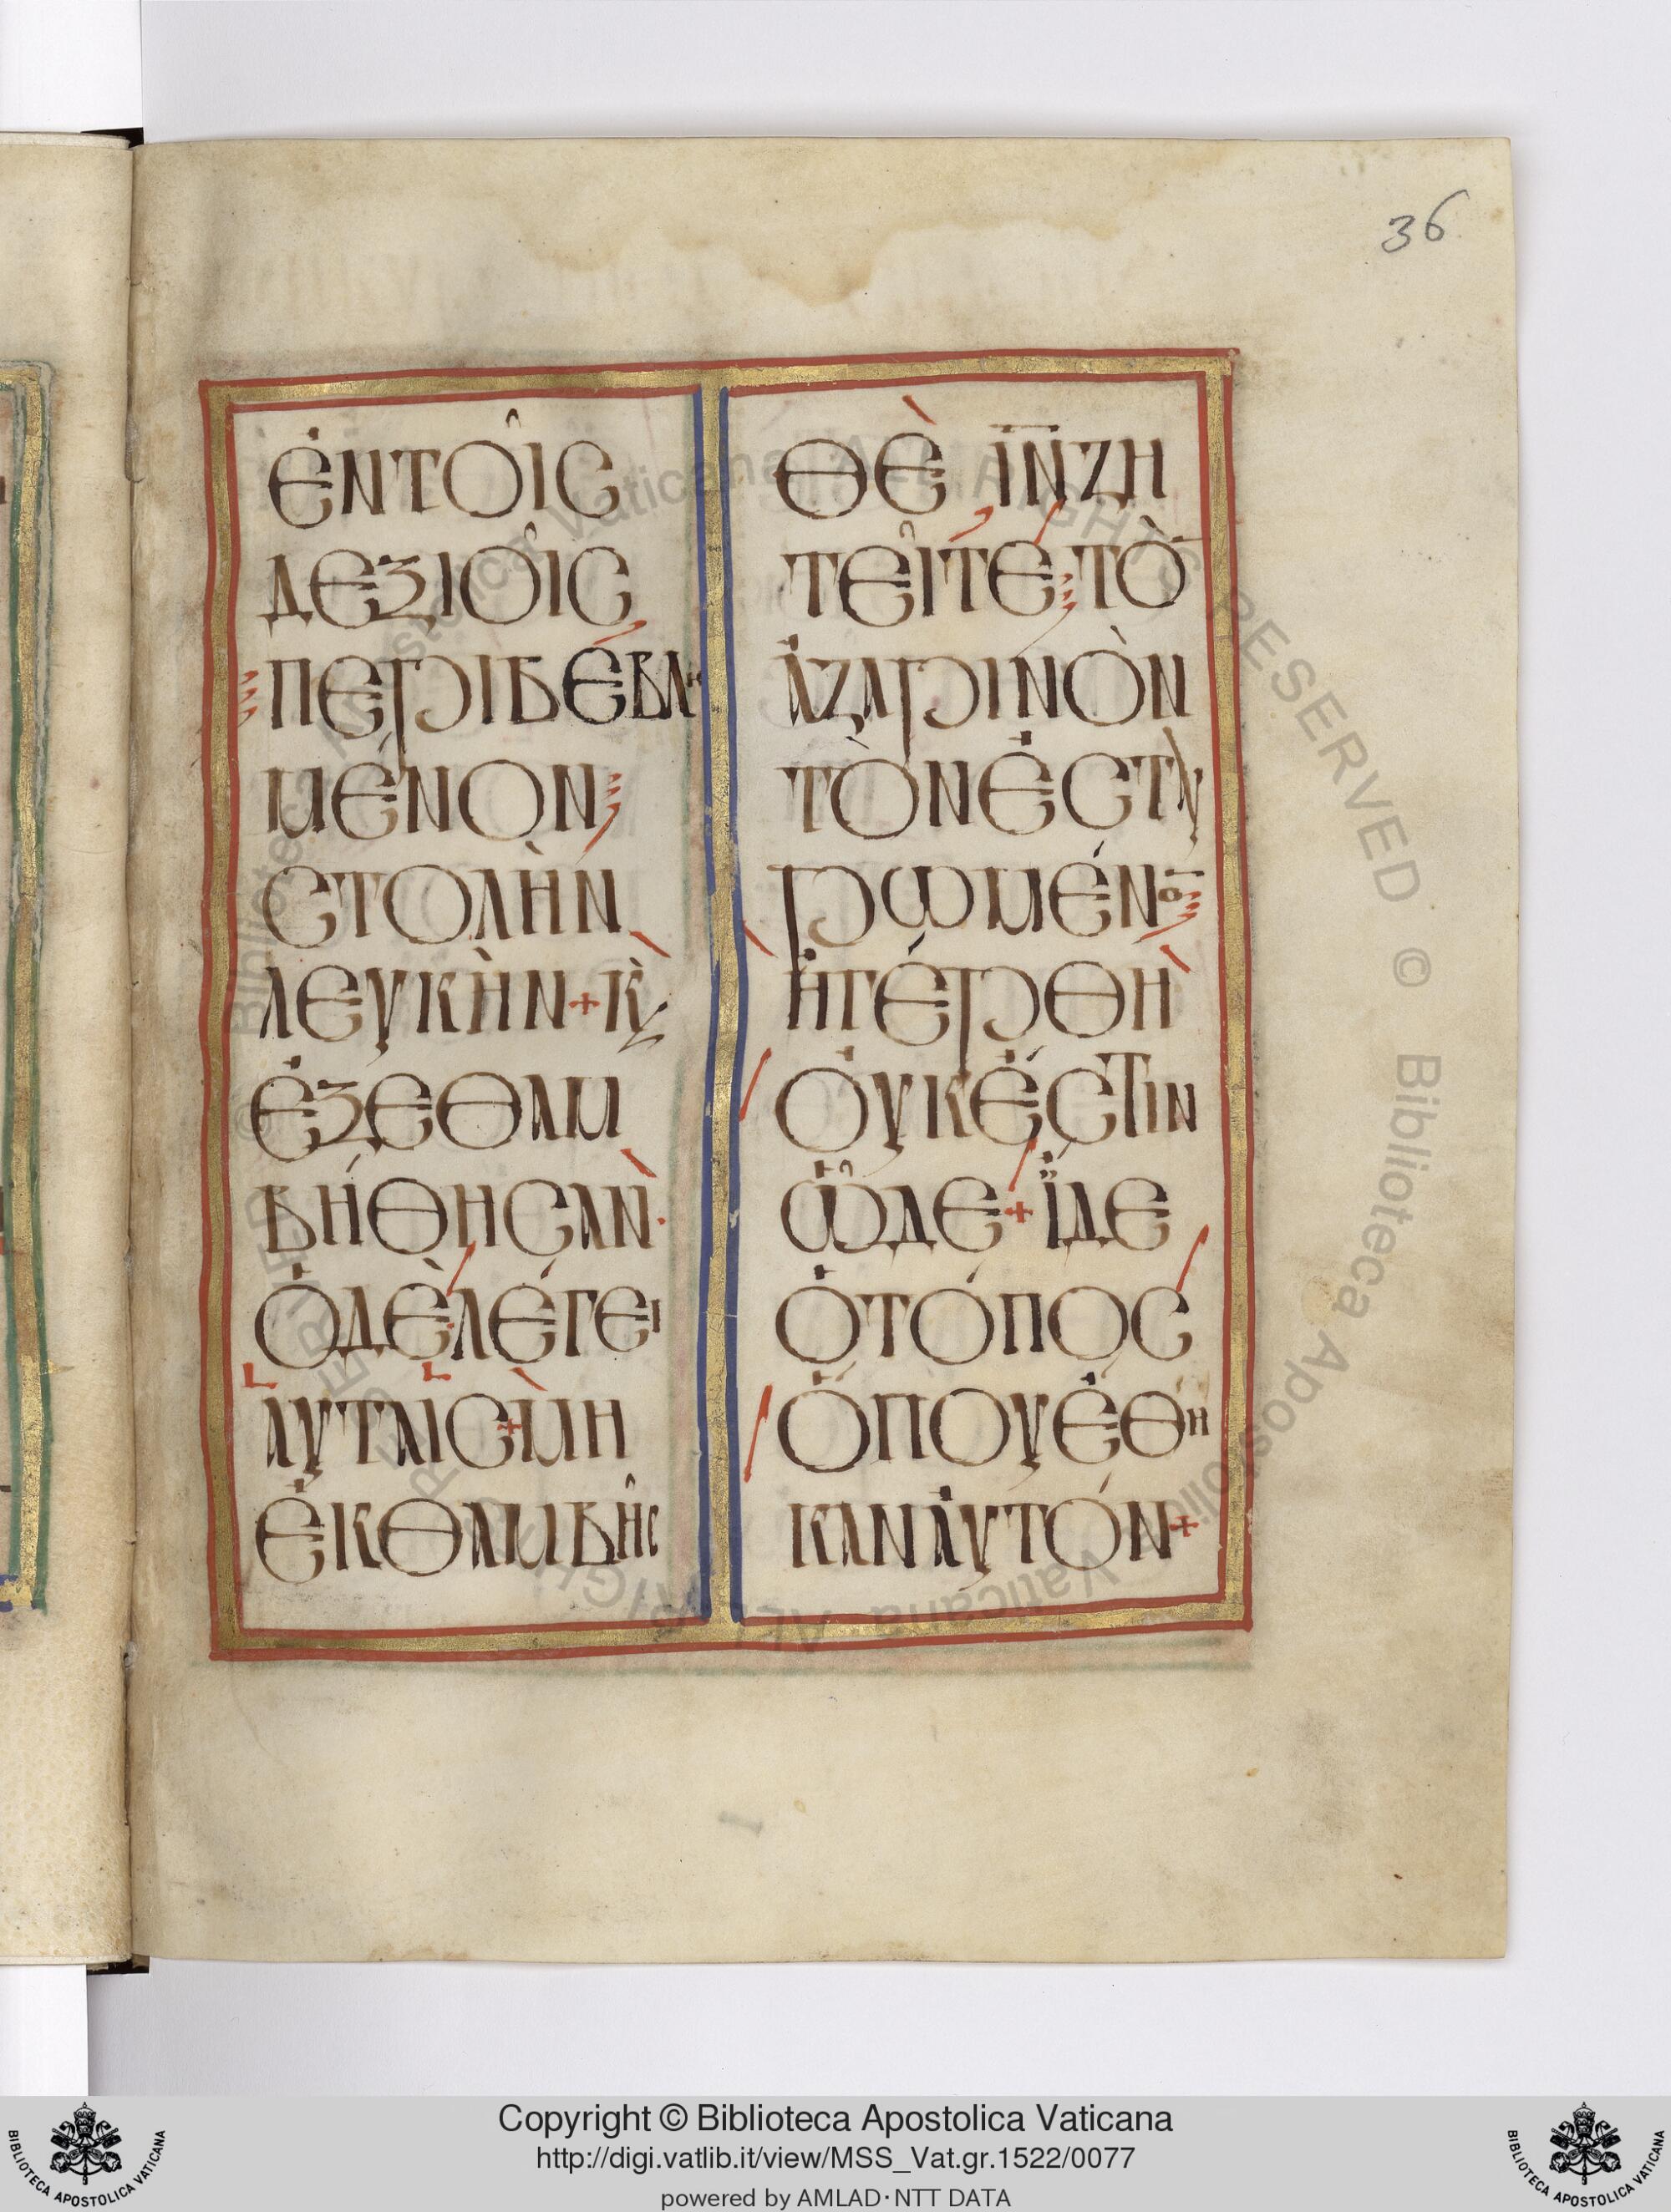 36
ἐν τοῖς
δεξιοῖς
περιβεβλ
μένον
στολὴν
λευκὴν + κ̀
ἐξεθαμ
βήθησαν·
ὁ δὲ λέγει
αὐταῖς + μὴ
ἐκθαμβῆς
θὲ ῑν̄ ζη
τεῖτε τὸ
ναζαρινὸν
τὸν ἐστυ
ρωμένο̄
ἠγέρθη
οὐκ ἔστιν
ὧδε + ἴδε
ὁ τόπος
ὅπου ἔθη
καν αὐτόν +
Copyright © Biblioteca Apostolica Vaticana
http://digi.vatlib.it/view/MSS_Vat.gr.1522/0077
powered by AMLAD·NTT DATA
BIBLIOTECA APOSTOLICA VATICANA
BIBLIOTECA APOSTOLICA VATICANA